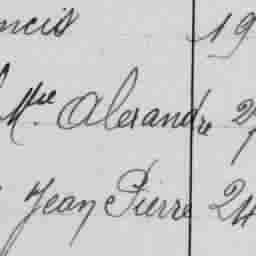 ncis 19
Mtre. Alexandre 2
Jean Pierre 24